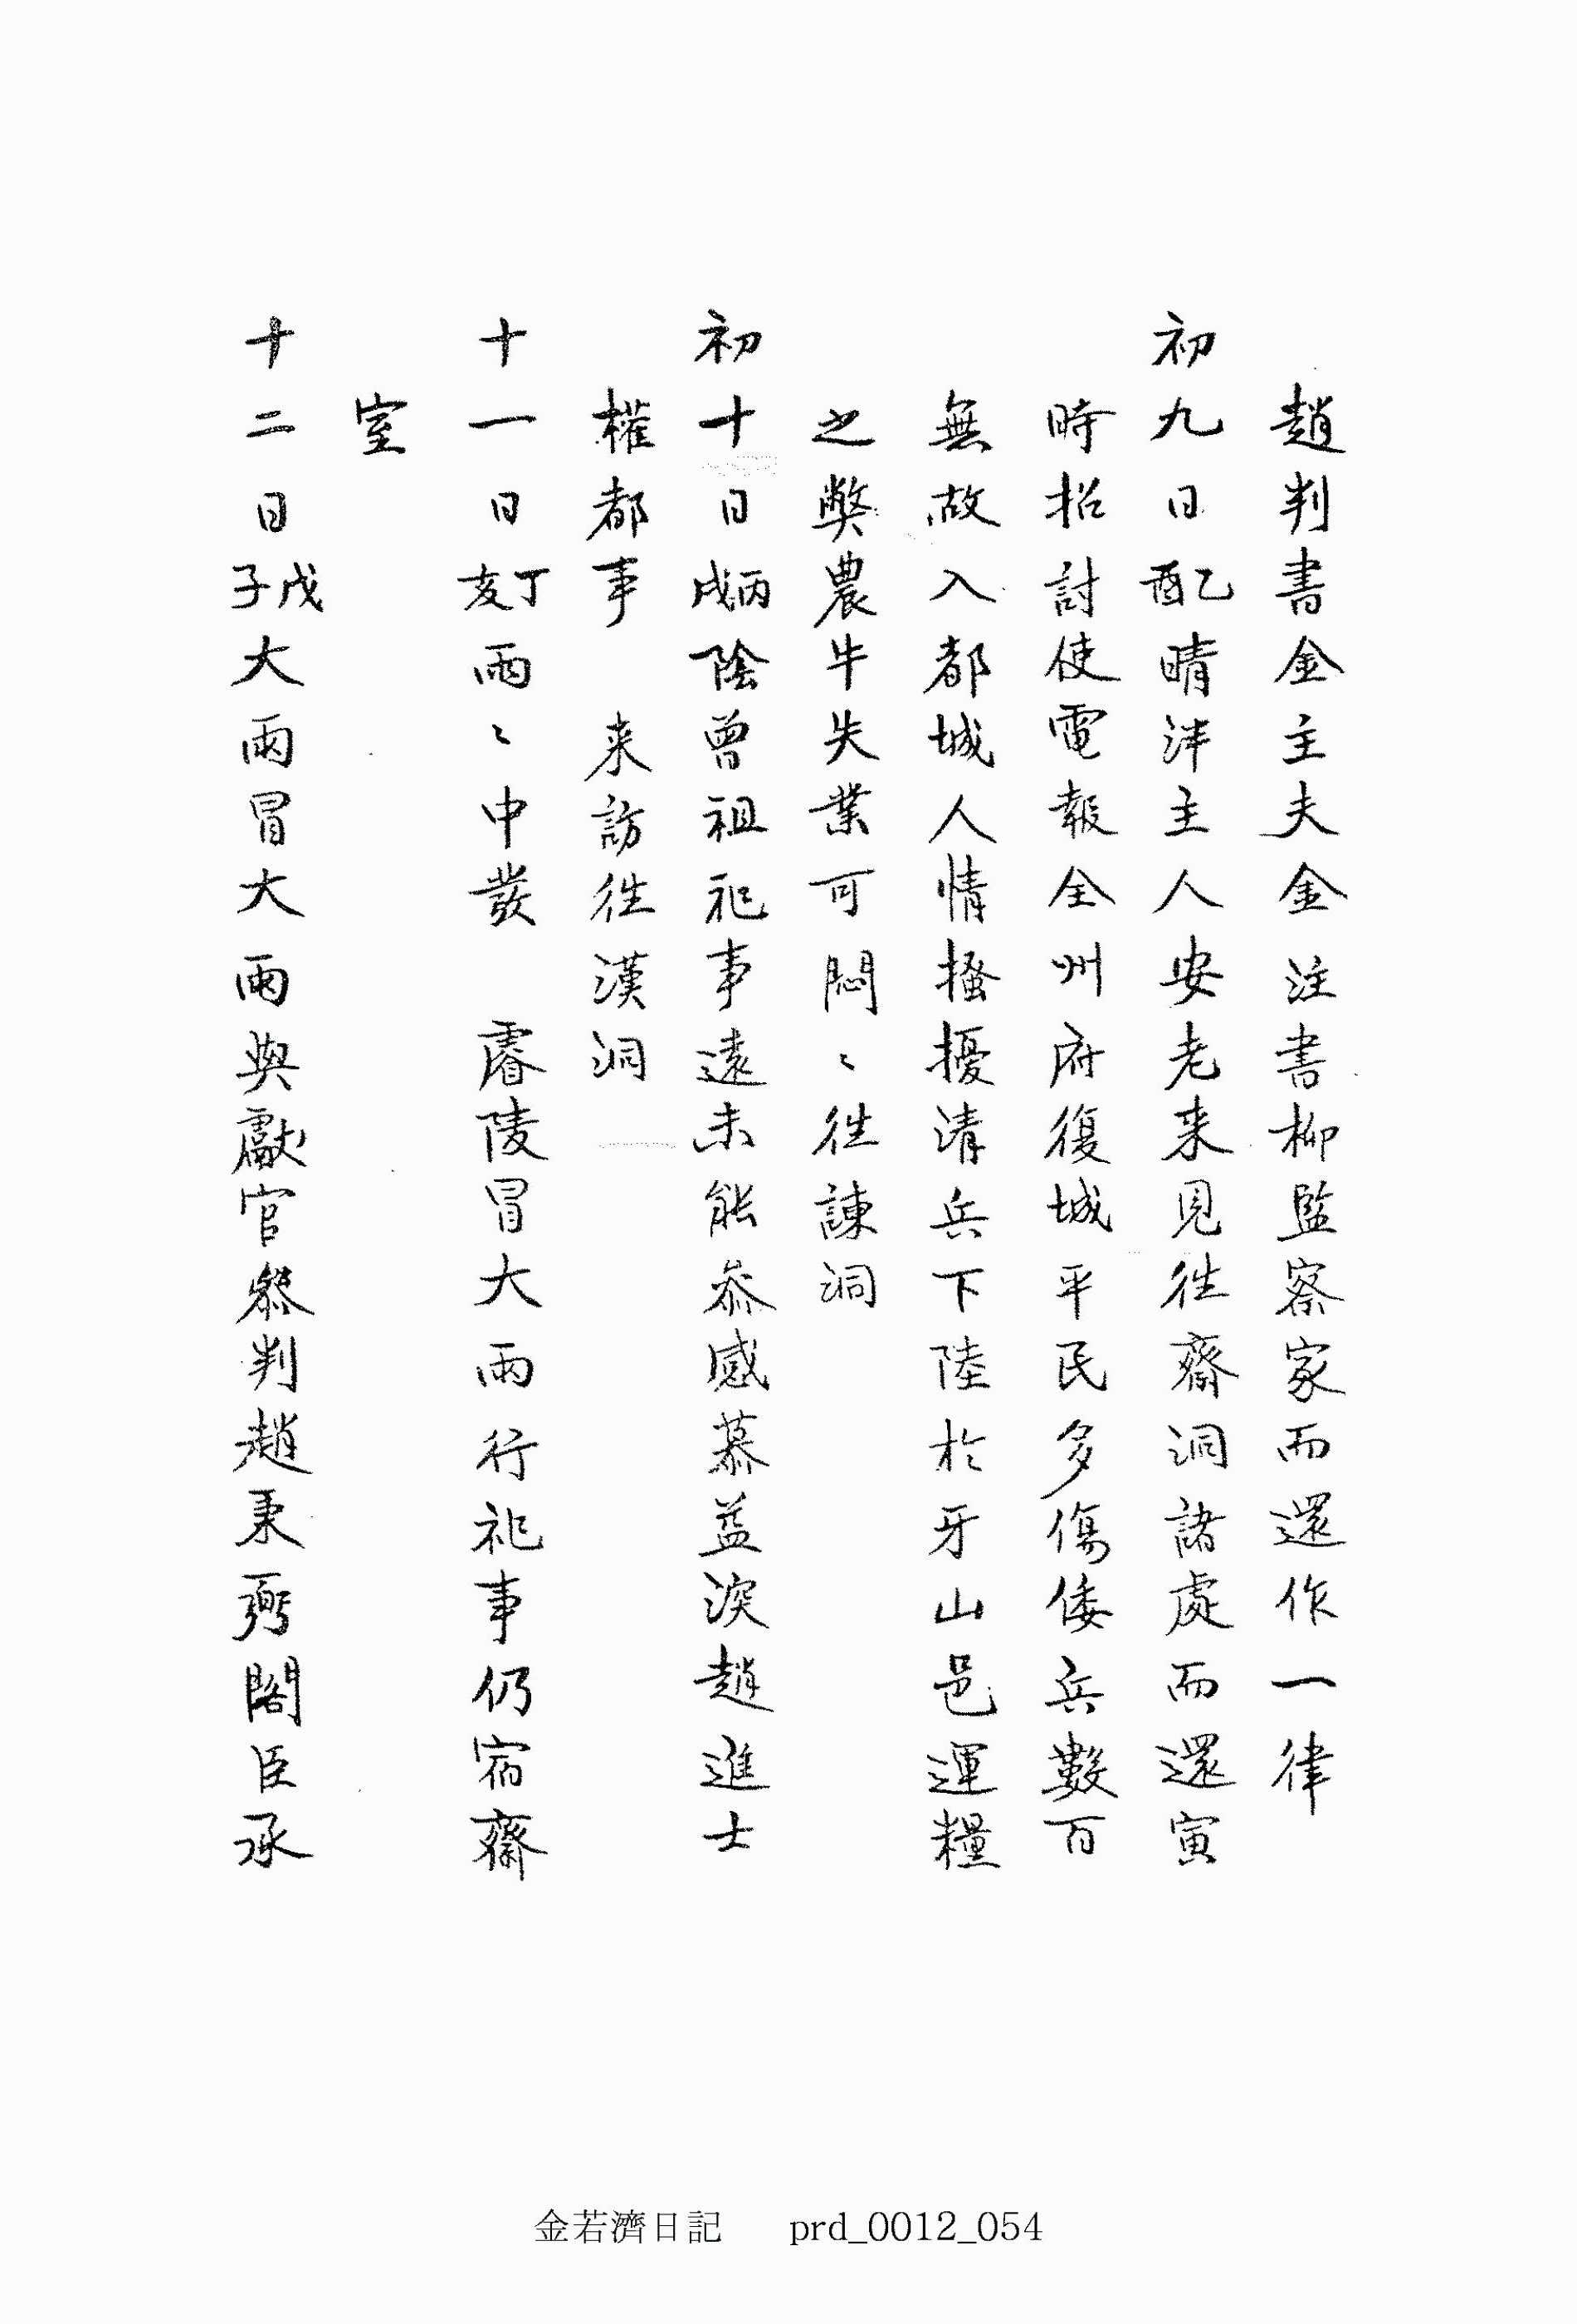 趙判書金主夫金注書柳監察家而還作一律
初九日乙酉晴泮主人安老来見徃齋洞諸處而還寅
時招討使電報全州府復城平民多傷倭兵數百
無故入都城人情搔擾清兵下陸於牙山邑運糧
之弊農牛失業可悶〻徃諫洞
初十日丙戌陰曾祖祀事遠未能叅感慕益深趙進士
權都事　来訪徃漢洞
十一日丁亥雨〻中發　睿陵冒大雨行祀事仍宿齋
室
十二日戊子大雨冒大雨與獻官叅判趙秉弼閣臣承
金若濟日記 prd_0012_054